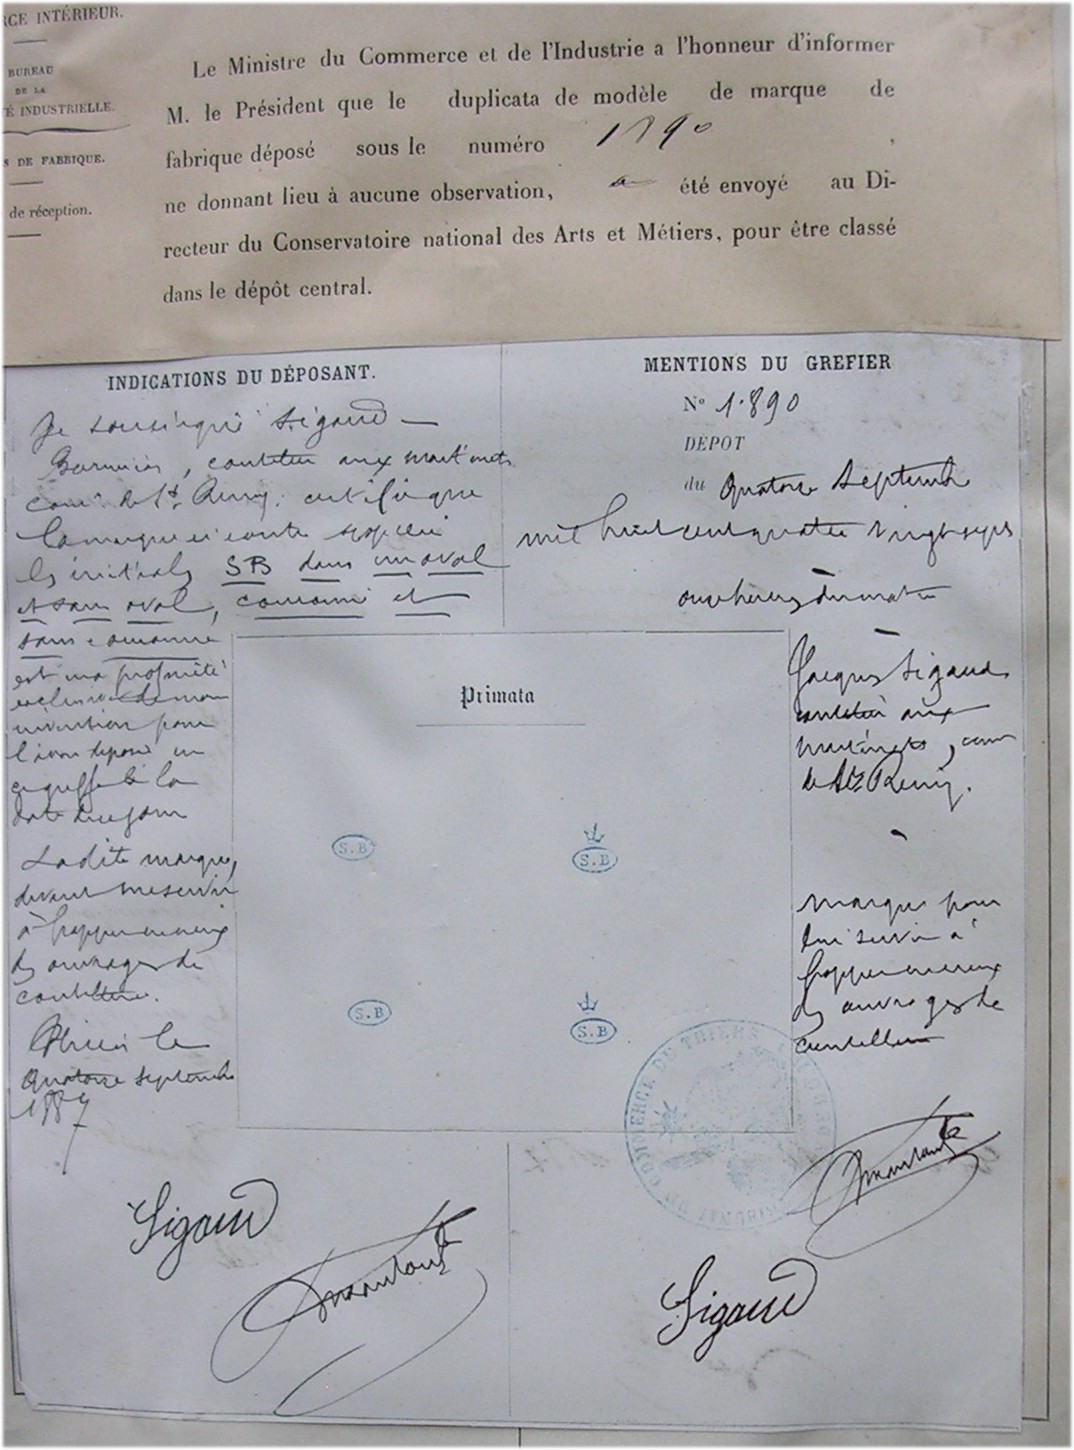 RCE INTÉRIEUR.
BUREAU
DE LA
É INDUSTRIELLE.
S DE FABRIQUE.
de réception.
Le Ministre du Commerce et de l'Industrie a l'honneur d'informer
M. le Président que le duplicata de modèle de marque de
fabrique déposé sous le numéro 1890
ne donnant lieu à aucune observation, a été envoyé au Di-
recteur du Conservatoire national des Arts et Métiers, pour être classé
dans le dépôt central.
INDICATIONS DU DÉPOSANT.
Je soussigné Sigaud
coutelier aux martinets
de St Remy. certifie que
la marque ci contre
les initiales SB dans un oval
et sans oval, couronné et
sans couronne
est ma propriété
exclusive de mon
invention pour
l'avoir déposé au
greffe à la
date de ce jour
Ladite marque,
devant me servir
à frapper
des ouvrages de
coutellerie.
Thiers le
Quatorze septembre
1887
Sigaud
MENTIONS DU GREFIER
N° 1.890
DÉPOT
du Quatorze Septembre
mil huit cent quatre vingt sept
onze heures du matin
Primata
S.B
S.B
S.B
S.B
Jacques Sigaud
coutelier aux
martinets,
de St Remy.
marque pour
lui servir à
frapper
des ouvrages de
coutellerie
TRIBUNAL DE COMMERCE DE THIERS
Sigaud